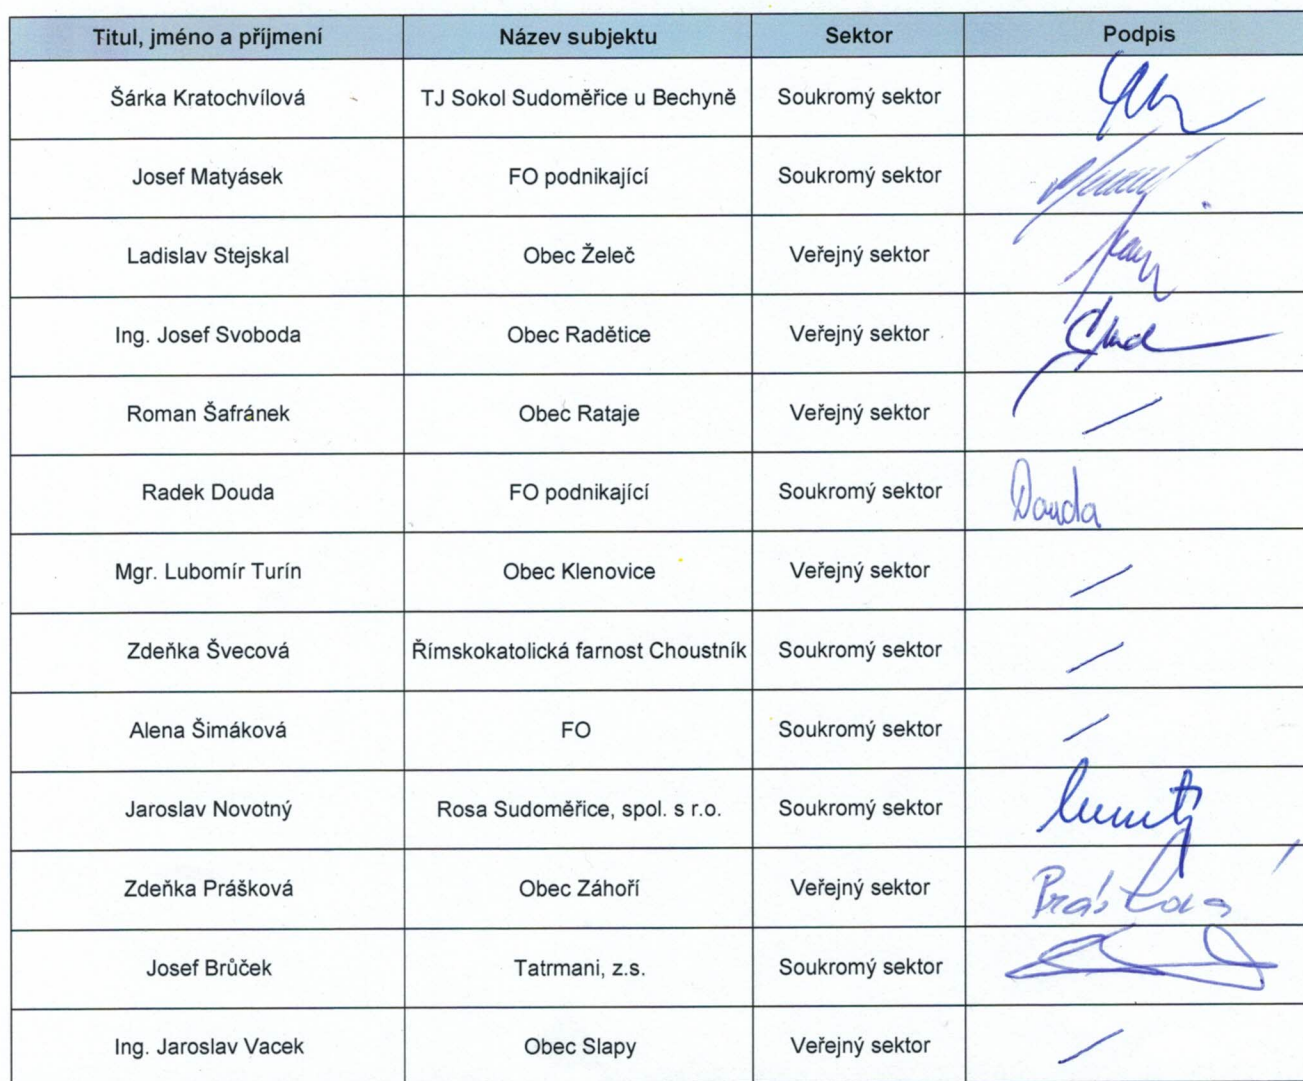 Titul, jméno a příjmení Název subjektu Sektor Podpis
Šárka Kratochvílová TJ Sokol Sudoměřice u Bechyně Soukromý sektor
Josef Matyásek FO podnikající Soukromý sektor
Ladislav Stejskal Obec Želeč Veřejný sektor
Ing. Josef Svoboda Obec Radětice Veřejný sektor
Roman Šafránek Obec Rataje Veřejný sektor
Radek Douda FO podnikající Soukromý sektor Douda
Mgr. Lubomír Turín Obec Klenovice Veřejný sektor
Zdeňka Švecová Římskokatolická farnost Choustník Soukromý sektor
Alena Šimáková FO Soukromý sektor
Jaroslav Novotný Rosa Sudoměřice, spol. s r.o. Soukromý sektor
Zdeňka Prášková Obec Záhoří Veřejný sektor Prášková
Josef Brůček Tatrmani, z.s. Soukromý sektor
Ing. Jaroslav Vacek Obec Slapy Veřejný sektor